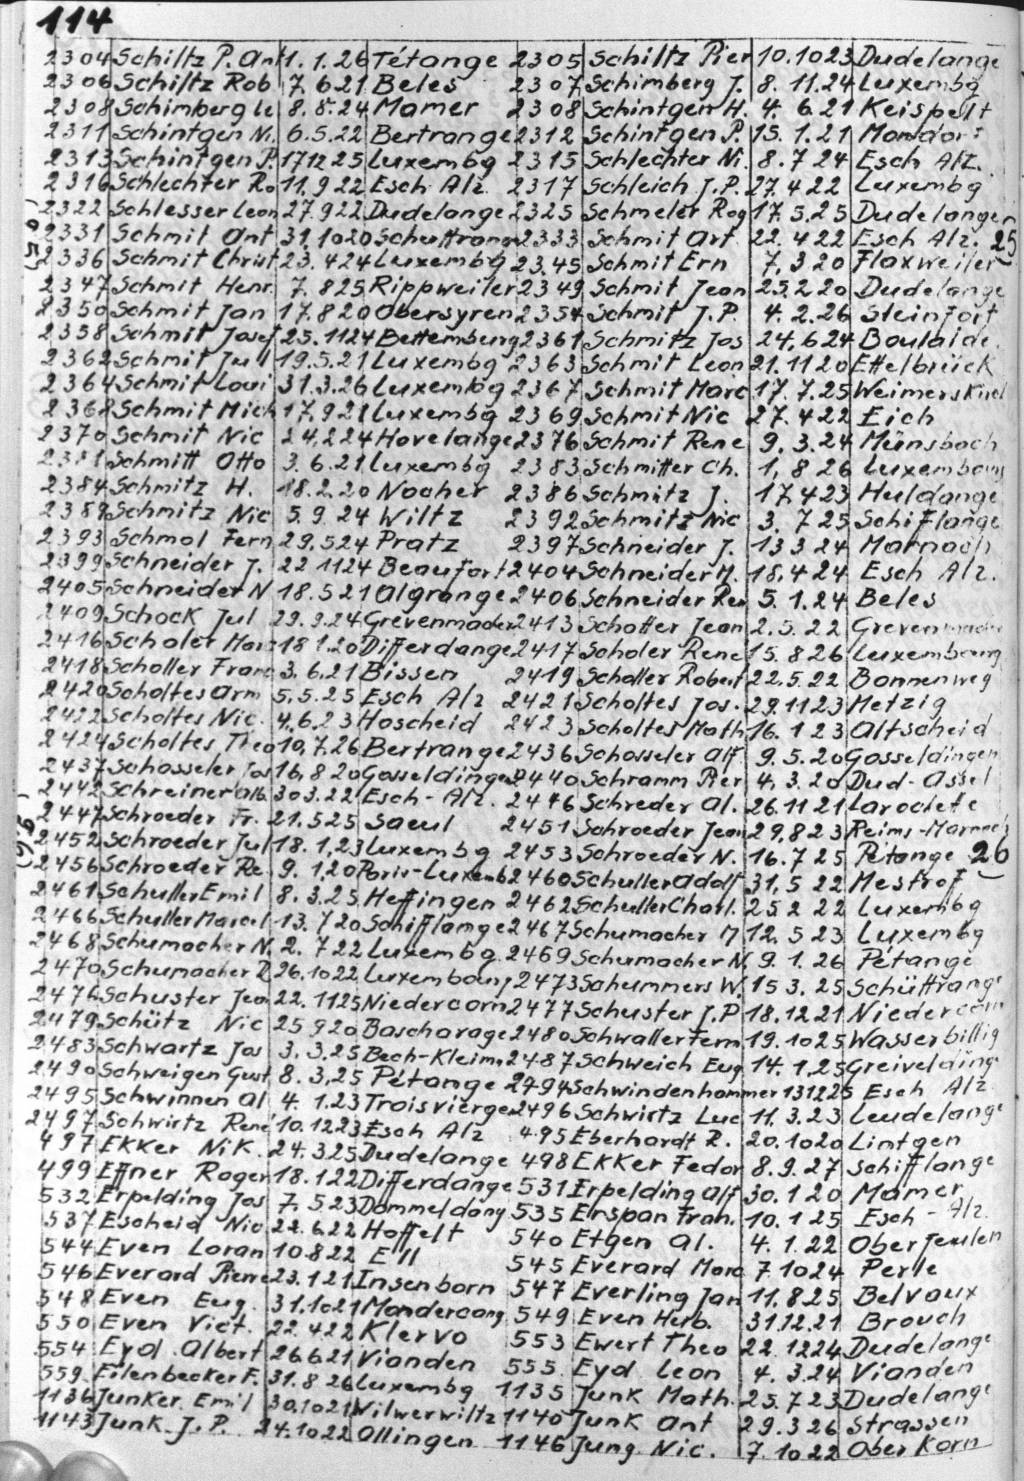 114
2304 Schiltz P. Ant 1. 1. 26 Tétange 2305 Schiltz Pier 10.10 23 Dudelange
2306 Schiltz Rob 7. 6.21 Beles 2307 Schimberg J. 8. 11.24 Luxembg
2308 Schimberg le 8. 8.24 Mamer 2308 Schintgen H. 4. 6.21 Keispelt
2311 Schintgen Ni. 6.5.22 Bertrange 2312 Schintgen P. 15. 1.21 Mondorf
2313 Schintgen P. 17 12 25 Luxembg 2315 Schlechter Ni. 8.7 24 Esch Alz.
2316 Schlechter Ro 11.9 22 Esch Alz. 2317 Schleich J.P. 27.4 22 Luxembg
2322 Schlesser Leon 27.9 22 Dudelange 2325 Schmeler Rog 17.5.25 Dudelange
2331 Schmit Ant 31.10 20 Schuttrange 2333 Schmit Art 22. 4 22 Esch Alz. 25
2336 Schmit Christ 23. 4 24 Luxembg 23.45 Schmit Ern 7. 3 20 Flaxweiler
2347 Schmit Henr. 7. 8 25 Rippweiler 2349 Schmit Jean 25.2 20 Dudelange
2350 Schmit Jan 17.8 20 Obersyren 2354 Schmit J.P. 4. 2.26 Steinfort
2358 Schmit Josef 25.11 24 Bettemburg 2361 Schmitz Jos 24.6 24 Boulaide.
2362 Schmit Jull 19.5.21 Luxembg 2363 Schmit Leon 21.11 20 Ettelbrück
2364 Schmit Loui 31.3.26 Luxembg 2367 Schmit Marc 17. 7.25 Weimerskirch
2368 Schmit Mich 17.9 21 Luxembg 2369 Schmit Nic 27. 4 22 Eich
2370 Schmit Nic 24.2 24 Hovelange 2376 Schmit Rene 9. 3.24 Münsbach
2381 Schmitt Otto 3. 6.21 Luxembg 2383 Schmitter Ch. 1. 8 26 Luxembourg
2384 Schmitz H. 18.2.20 Nocher 2386 Schmitz J. 17.4 23 Huldange
2388 Schmitz Nic 5.9.24 Wiltz 2392 Schmitz Nic 3. 7 25 Schifflange
2393 Schmol Fern 29.5 24 Pratz 2397 Schneider J. 13 3 24 Marnach
2399 Schneider J. 22 11 24 Beaufort 2404 Schneider M. 18.4 24 Esch Alz.
2405 Schneider N 18.5 21 Algrange 2406 Schneider Ren 5. 1.24 Beles
2409 Schock Jul 29.9.24 Grevenmacher 2413 Schotter Jean 2.5.22 Grevenmacher
2416 Scholer Marc 18 1.20 Differdange 2417 Scholer Rene 15. 8 26 Luxembourg
2418 Scholler Franc 3. 6.21 Bissen 2419 Scholler Robert 22.5.22 Bonnenweg
2420 Scholtes Arm 5.5.25 Esch Alz 2421 Scholtes Jos. 29.11 23 Metzig
2422 Scholtes Nic. 4.6.23 Hoscheid 2423 Scholtes Math 16. 1 23 Altscheid
2424 Scholtes Theo 10.7.26 Bertrange 2436 Schosseler Alf 9. 5.20 Gosseldingen
2437 Schosseler Jos 16.8 20 Gosseldinge 2440 Schramm Pier 4. 3.20 Dud-Assel
2442 Schreiner Alb. 30 3.22 Esch-Alz. 2446 Schreder Al. 26.11 21 Larochete
2447 Schroeder Fr. 21.5 25 Saeul 2451 Schroeder Jean 29.8 23 Reims-Marnach
2452 Schroeder Jul 18. 1.23 Luxembg 2453 Schroeder N. 16.7 25 Pétange 26
2456 Schroeder Re 9. 1.20 Paris-Luxemb 2460 Schuller Adolf 31.5 22 Mestrof
2461 Schuller Emil 8. 3.25 Heffingen 2462 Schuller Charl. 25 2 22 Luxembg
2466 Schuller Marcel 13. 7 20 Schifflange 2467 Schumacher M 12. 5 23 Luxembg
2468 Schumacher N. 2. 7 22 Luxembg. 2469 Schumacher N. 9. 1. 26 Pétange
2470 Schumacher R 26.10 22 Luxembourg 2473 Schummers W. 15 3. 25 Schüttrange
2476 Schuster Jean 22. 11 25 Niedercorn 2477 Schuster J.P 18.12 21 Niedercorn
2479 Schütz Nic 25 9 20 Bascharage 2480 Schwaller Fern 19. 10 25 Wasserbillig
2483 Schwartz Jos 3. 3.25 Bech-Kleim. 2487 Schweich Eug 14. 1.25 Greiveldinge
2490 Schweigen Gust 8. 3.25 Pétange 2494 Schwindenhammer 13 12 25 Esch Alz
2495 Schwinnen Al 4. 1.23 Troisvierge 2496 Schwirtz Luc 11. 3.23 Leudelange
2497 Schwirtz René 10.12 23 Esch Alz 495 Eberhardt R. 20.10 20 Lintgen
497 Ekker Nik. 24. 3.25 Dudelange 498 Ekker Fedor 8. 9. 27 Schifflange
499 Effner Roger 18. 1.22 Differdange 531 Erpelding Alf 30. 1 20 Mamer
532 Erpelding Jos 7. 5 23 Dommeldang 535 Erspan Fran. 10. 1 25 Esch-Alz.
537 Escheid Nic 22. 6 22 Hoffelt 540 Etgen Al. 4. 1. 22 Oberfeulen
544 Even Loran 10.8 22 Ell 545 Everard Marc 7 10 24 Perle
546 Everard Pierre 23. 1 21 Insenborn 547 Everling Jan 11. 8 25 Belvaux
548 Even Eug. 31.10 21 Mondercang 549 Even Herb. 31.12.21 Brouch
550 Even Vict. 22. 4 22 Klervo 553 Ewert Theo 22. 12 24 Dudelange
554 Eyd Albert 26 6 21 Vianden 555 Eyd Leon 4. 3.24 Vianden
559 Eilenbecker F. 31. 8 26 Luxembg 1135 Junk Math. 25.7 23 Dudelange
1136 Junker Emil 30.10 21 Wilwerwiltz 1140 Junk Ant 29. 3.26 Strassen
1143 Junk J.P. 24.10 22 Ollingen 1146 Jung Nic. 7. 10 22 Oberkorn